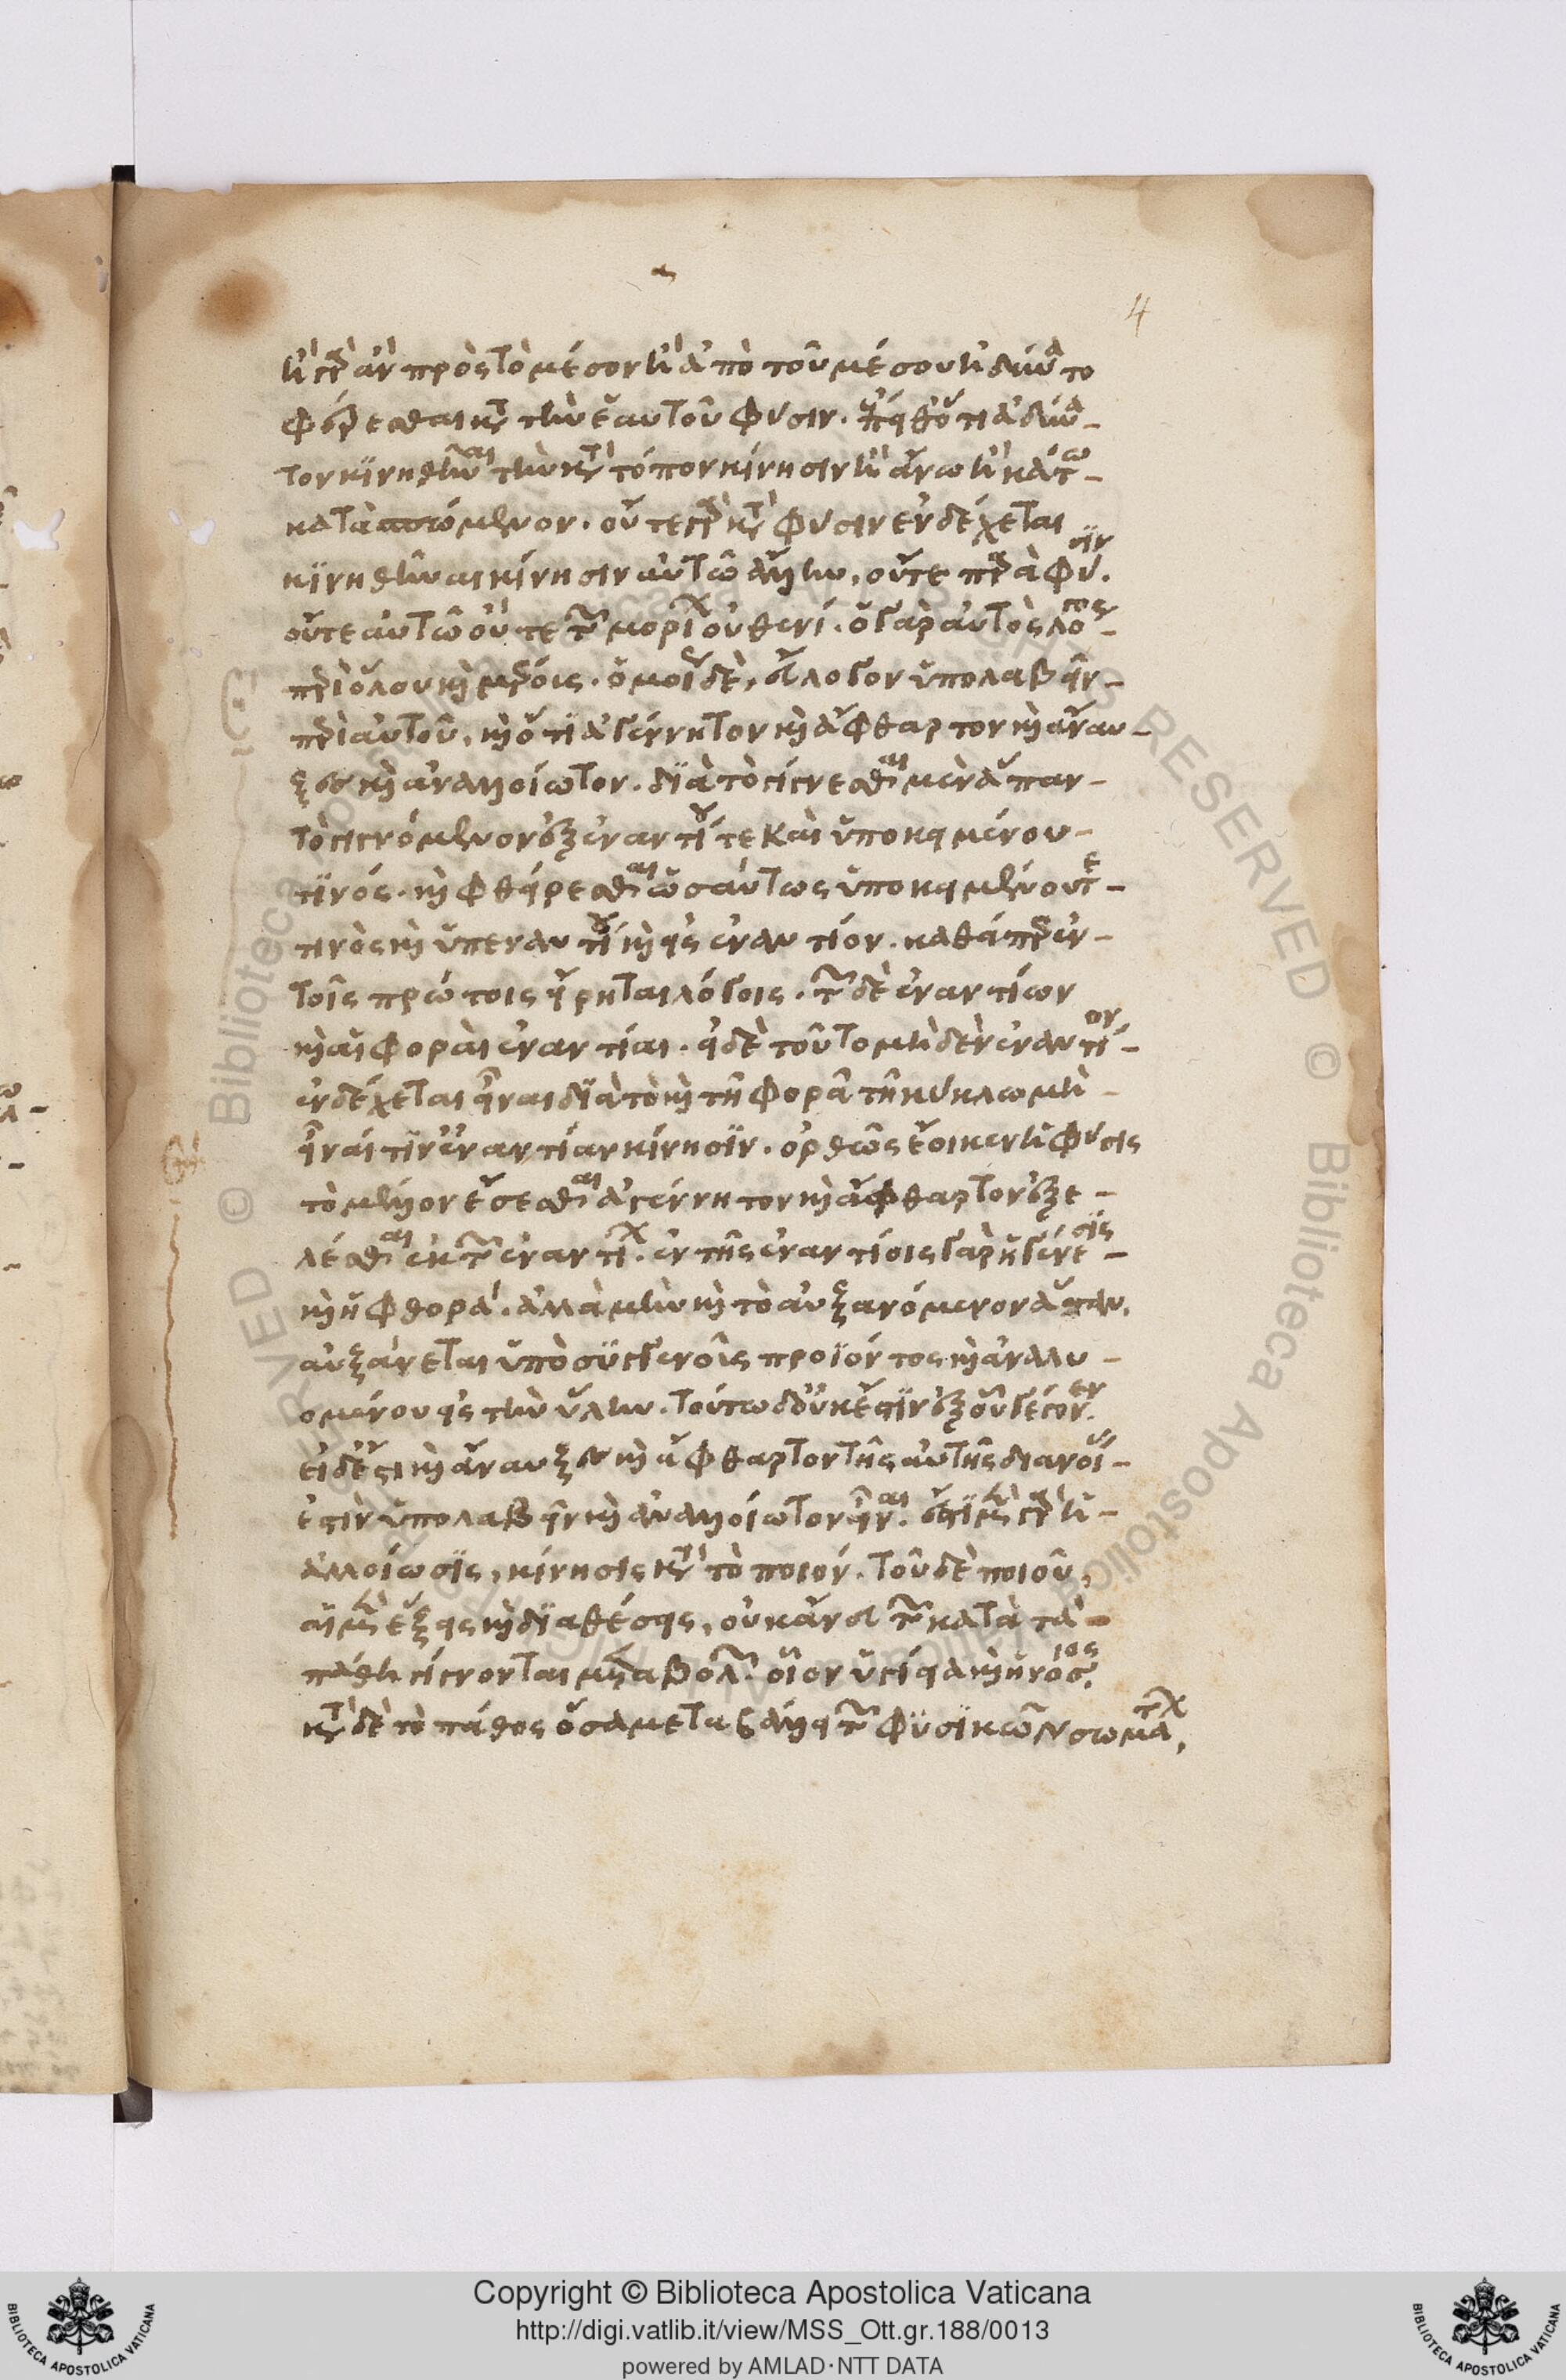 ἢ γὰρ ἂν πρὸς τὸ μέσον ἢ ἀπὸ τοῦ μέσου ἠδύνατο
φέρεσθαι κατὰ τὴν ἑαυτοῦ φύσιν. ἀδύνα-
τον κινηθῆναι τὴν κατὰ τόπον κίνησιν ἢ ἄνω ἢ κάτω-
κατασπόμενον. οὔτε γὰρ κατὰ φύσιν ἐνδέχεται
κινηθῆναι κίνησιν αὐτῶ ἄλλην, οὔτε παρὰ φύσιν.
οὔτε αὐτῶ οὔτε τῶν μορίων οὐθενί. ὁ γὰρ αὐτὸς λόγος-
περὶ ὅλου καὶ μέρους. ὁμοίως δὲ, εὔλογον ὑπολαβεῖν-
περὶ αὐτοῦ, καὶ ὅτι ἀγέννητον καὶ ἄφθαρτον καὶ ἀναυ-
ξὲς καὶ ἀναλλοίωτον. διὰ τὸ γίγνεσθαι μὲν ἅπαν-
τὸ γιγνόμενον ἐξ ἐναντίου τε καὶ ὑποκειμένου-
τινός. καὶ φθείρεσθαι ὡσαύτως ὑποκειμένου τέ-
τινὸς καὶ ὑπ' ἐναντίου καὶ εἰς ἐναντίον. καθάπερ ἐν-
τοῖς πρώτοις εἴρηται λόγοις. τῶν δὲ ἐναντίων
καὶ αἱ φοραὶ ἐναντίαι. εἰ δὲ τοῦτο μὴδὲν ἐναντίον-
ἐνδέχεται εἶναι διὰ τὸ καὶ τῆ φορᾶ τῆ κύκλω μὴ-
εἶναί τιν' ἐναντίαν κίνησιν. ὀρθῶς ἔοικεν ἡ φύσις
τὸ μέλλον ἔσεσθαι ἀγέννητον καὶ ἄφθαρτον ἐξε-
λέσθαι ἐκ τῶν ἐναντίων. ἐν τῆς ἐναντίοις γὰρ ἡ γένεσις-
καὶ ἡ φθορά. ἀλλὰ μὴν καὶ τὸ αὐξανόμενον ἅπαν.
αὐξάνεται ὑπὸ συγγενοῖς προϊόντος καὶ ἀναλυ-
ομένου εἰς τὴν ὕλην. τούτω δ' οὐκ ἔστιν ἐξ οὗ γέγονεν.
εἰ δ' ἐστὶ καὶ ἀναυξὲς καὶ ἄφθαρτον τῆς αὐτῆς διανοίας-
ἐστὶν ὑπολαβεῖν καὶ ἀναλλοίωτον εἶναι. ἔστι μὲν γὰρ ἡ-
ἀλλοίωσις, κίνησις κατὰ τὸ ποιόν. τοῦ δὲ ποιοῦ,
αἱ μὲν ἕξεις καὶ διαθέσεις, οὐκ ἄνευ τῶν κατὰ τὰ-
πάθη γίγνονται μεταβολῶν. οἷον ὑγίεια καὶ νόσος.
κατὰ δὲ τὸ πάθος ὅσα μεταβάλλει τῶν φυσικῶν σωμάτων,
4
Copyright © Biblioteca Apostolica Vaticana
http://digi.vatlib.it/view/MSS_Ott.gr.188/0013
powered by AMLAD·NTT DATA
BIBLIOTECA APOSTOLICA VATICANA
BIBLIOTECA APOSTOLICA VATICANA